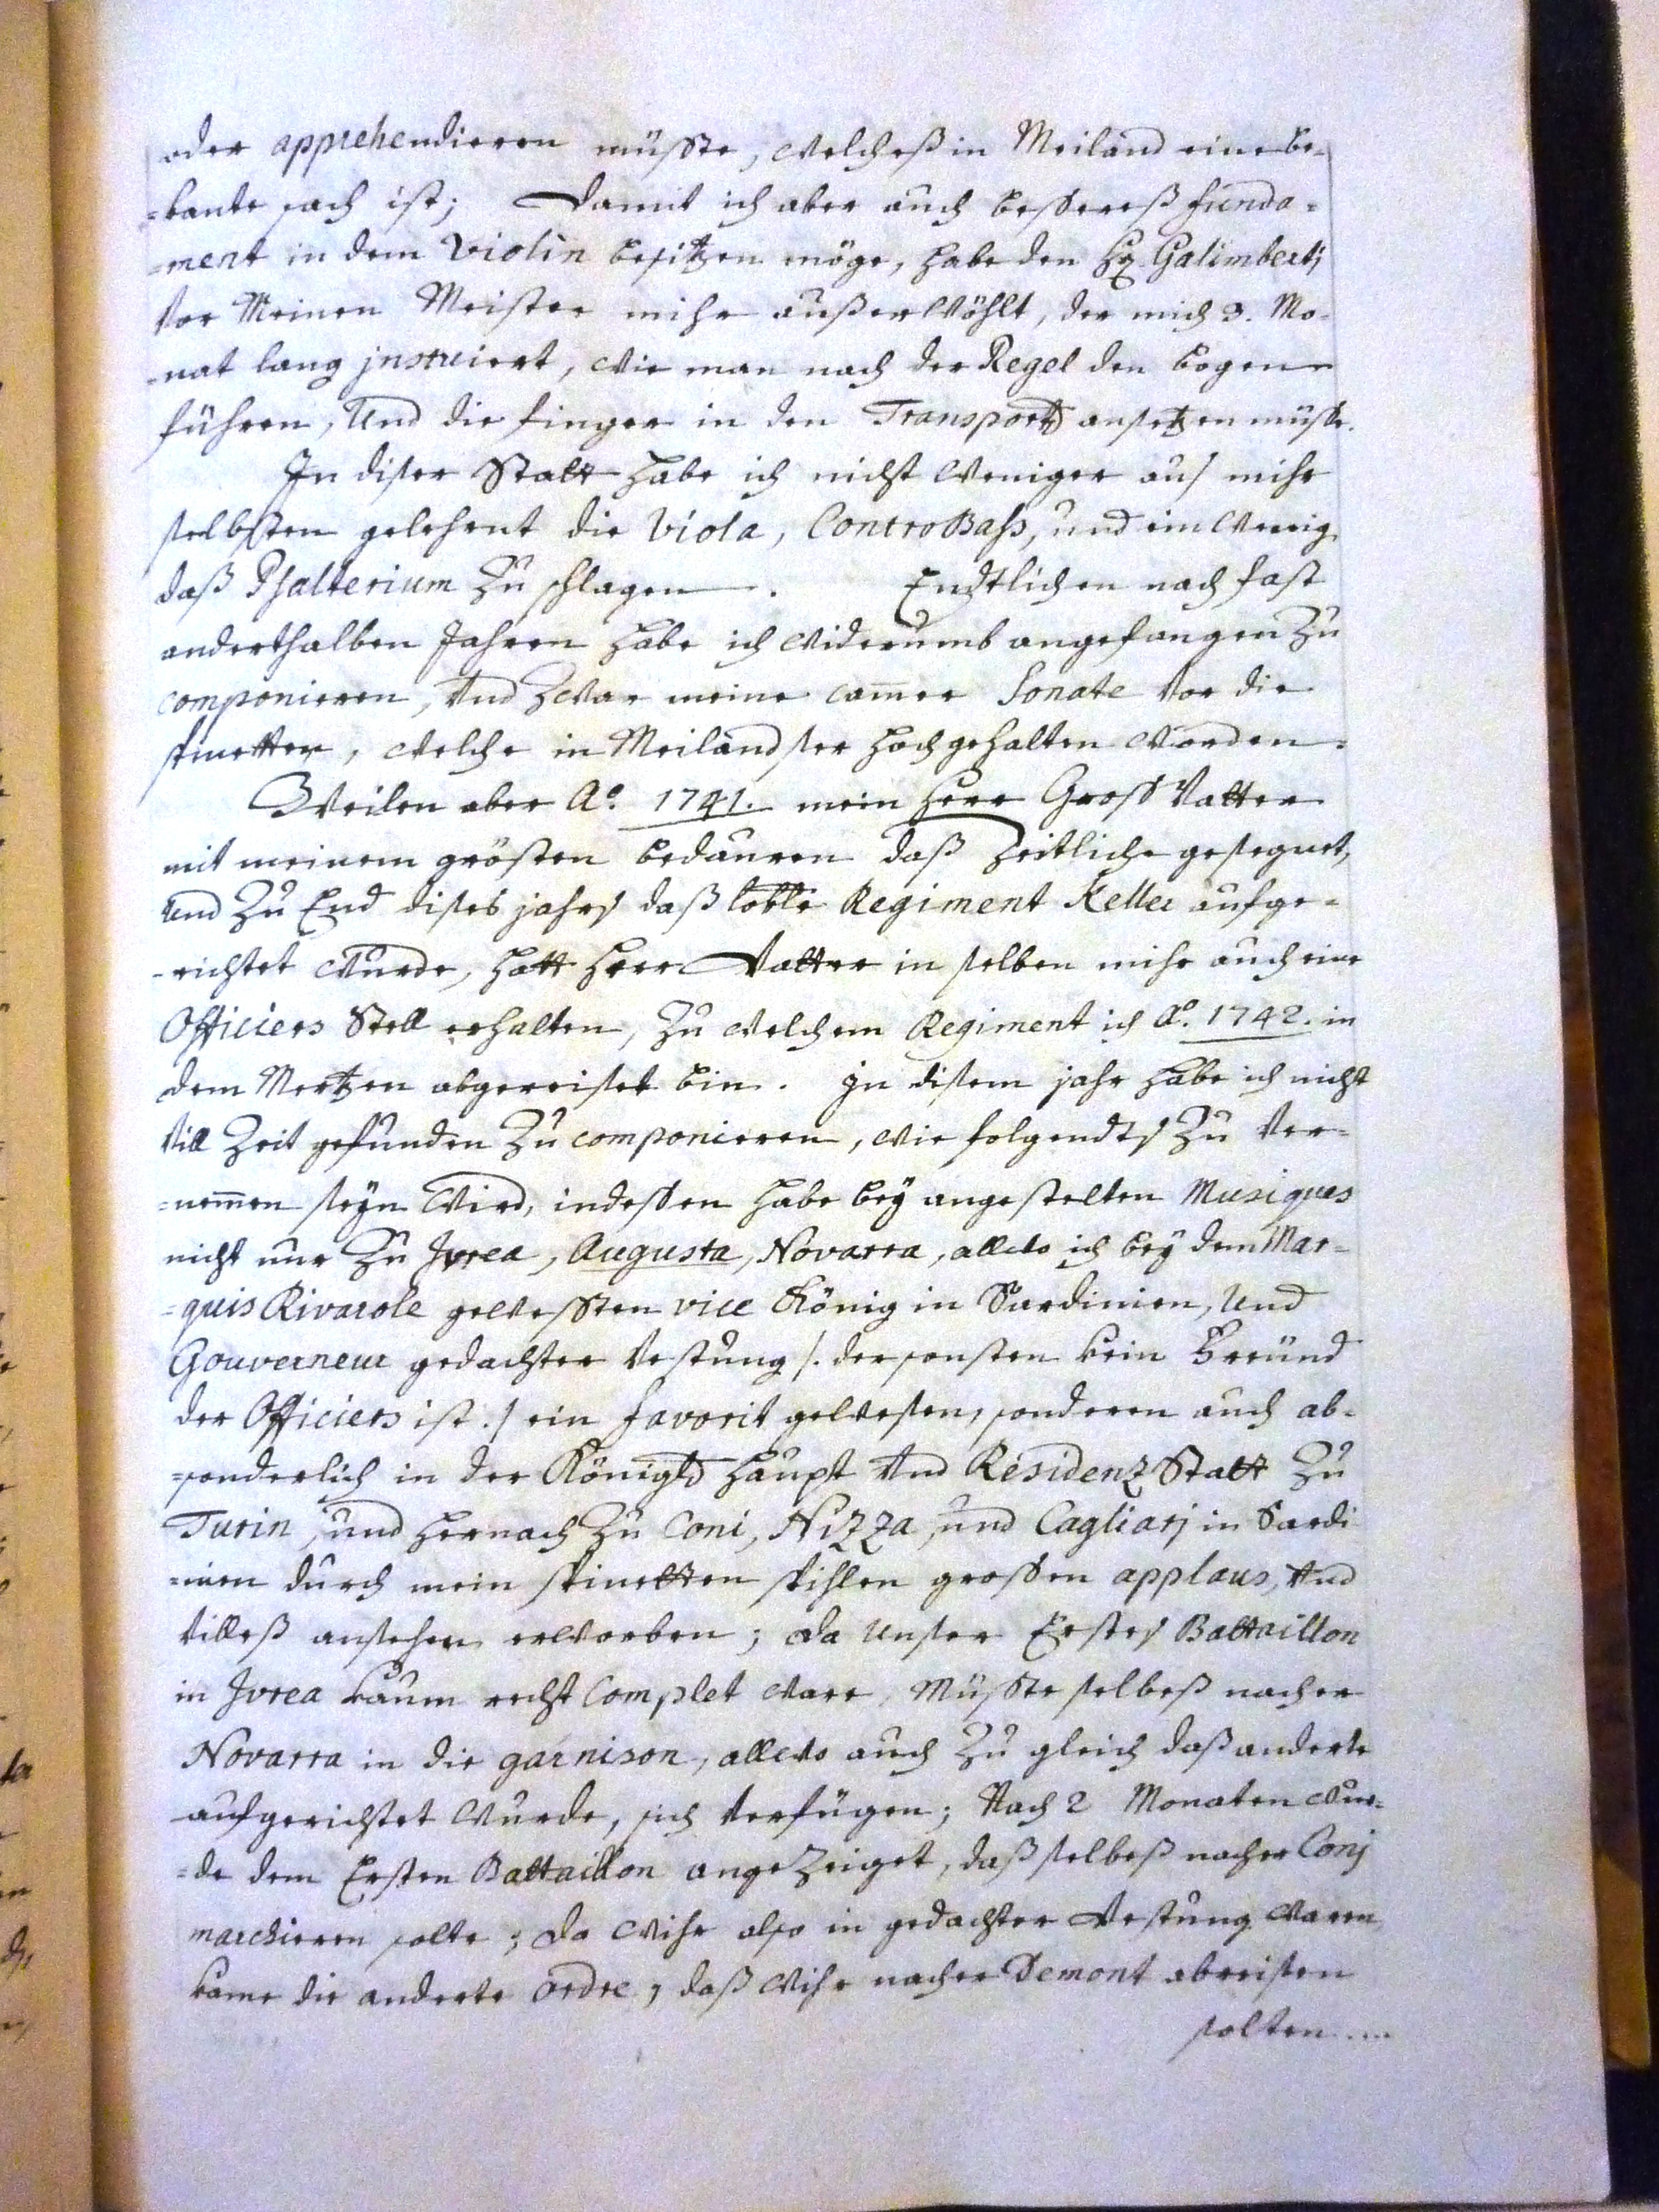 oder apprehendieren müßte, welcheß in Meiland eine be-
=kante sach ist; Damit ich aber auch beßereß funda=
=ment in dem Violin besitzen möge, habe den Hr. Galimbertj
vor Meinen Meister mihr außerwöhlt, der mich 3. Mo-
-nat lang jnstruiert, wie man nach der Regel den bogen
führen, und die finger in den Transports ansetzen müße.
In diser Statt habe ich nicht weniger aus mihr
selbsten gelehrnt die Viola, ControBass, und ein wenig
daß Psalterium zu schlagen. Endtlichen nach fast
anderthalben Jahren habe ich widerumb angefangen zu
componieren, und zwar meine cam̄er Sonate vor die
spinetten, welche in Meiland ser hoch gehalten worden.
Weilen aber Aº. 1741. mein Herr Groß Vatter
mit meinem grösten bedauren daß zeitliche gesegnet,
und zu End dises jahrs daß loble Regiment Keller aufge=
-richtet wurde, hatt Herr Vatter in selben mihr auch eine
Officiers Stell erhalten, zu welchem Regiment ich Aº. 1742. in
dem Mertzen abgereiset bin. In disem jahr habe ich nicht
vill Zeit gefunden zu componieren, wie folgendts zu ver=
=nem̄en seyn wird, indeßen habe bey angestelten Musiques
nicht nur zu Jvrea, Augusta, Novarra, allwo ich bey dem Mar=
=quis Rivarole geweßten vice König in Sardinien, und
Gouverneur gedachter Vestung /. der sonsten kein Freünd
der Officiers ist ./ ein favorit gewesen, sonderen auch ab=
=sonderlich in der Königl. Haupt und Residenz Statt zu
Turin, und hernach zu Coni, Nizza, und Cagliarj in Sardi
=nien durch mein spinetten spihlen großen applaus, und
villeß ansehen erworben; da unser Erstes Battaillon
in Jvrea kaum recht Complet ware, müßte selbeß nacher
Novarra in die garnison, allwo auch zu gleich daß anderte
aufgerichtet wurde, sich verfügen; Nach 2 Monaten wur=
=de dem Ersten Battaillon angezeiget, daß selbeß nacher Conj
marchieren solte; da wihr also in gedachter Vestung waren
kame die anderte ordre, daß wihr nacher Demont abreisen
solten....